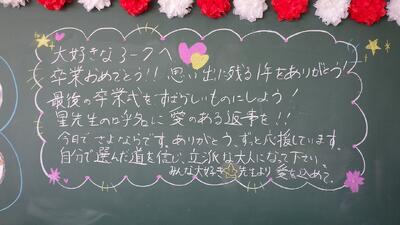 大好きな3-クへ
卒業おめでとう!! 思い出に残る1年をありがとう!
最後の卒業式をすばらしいものにしよう!
星先生の呼名に愛のある返事を!!
今日でさよならです。ありがとう、ずっと応援しています。
自分で選んだ道を信じ、立派な大人になって下さい。
みんな大好き☆先生より 愛を込めて。